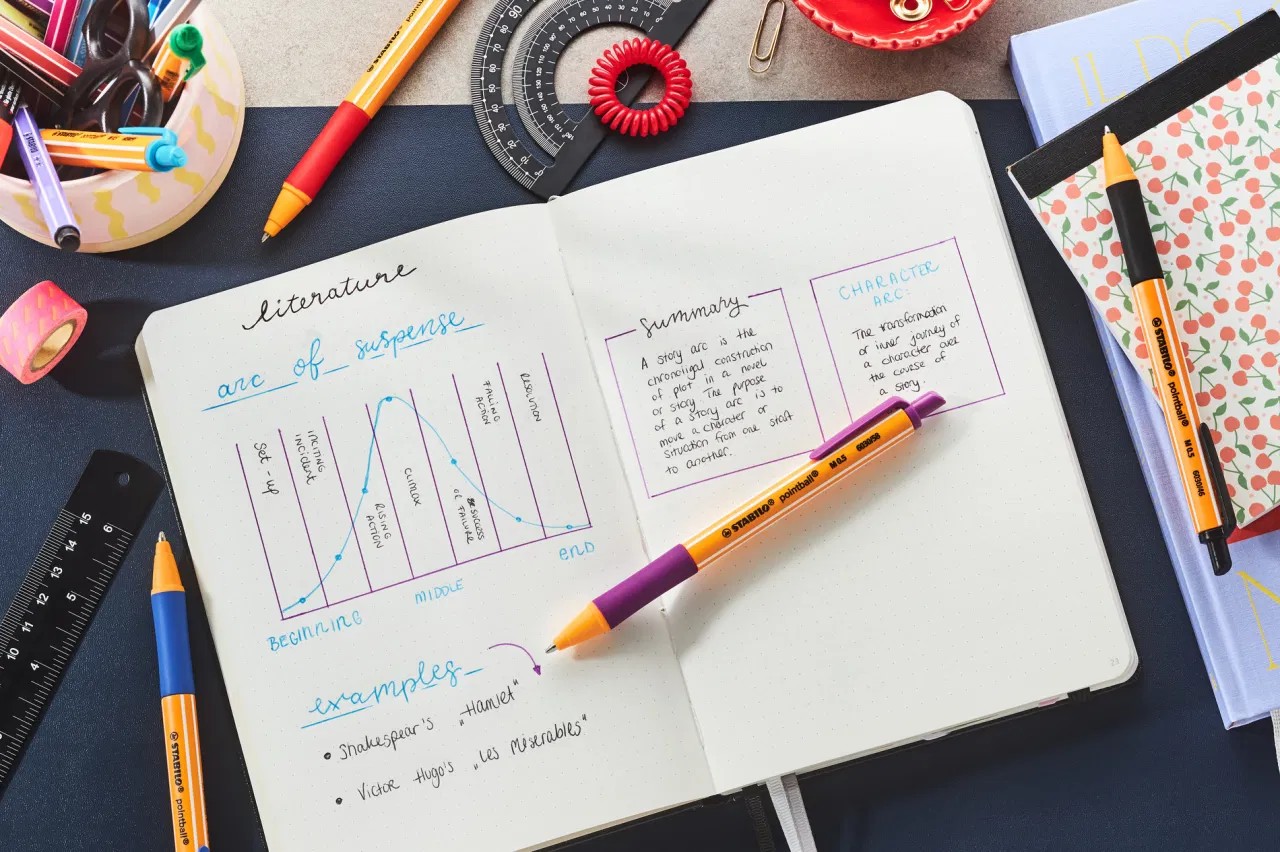 literature
arc of suspense
Set-up
INCITING
INCIDENT
RISING
ACTION
CLIMAX
SUCCESS
OF FAILURE
FALLING
ACTION
RESOLUTION
BEGINNING
MIDDLE
END
examples
• Shakespear's „Hamlet"
• Victor Hugo's „Les Misérables"
summary
A story arc is the
construction
of plot in a novel
or story. The purpose
of a story arc is to
move a character or
situation from one start
to another.
CHARACTER
ARC:
The transformation
or inner journey of
a character over
the course of
a story.
21
STABILO® pointball® M 0.5 6030/58
STABILO® pointball® M 0.5 6030/46
STABILO® pointball®
15
14
13
12
11
10
6
5
4